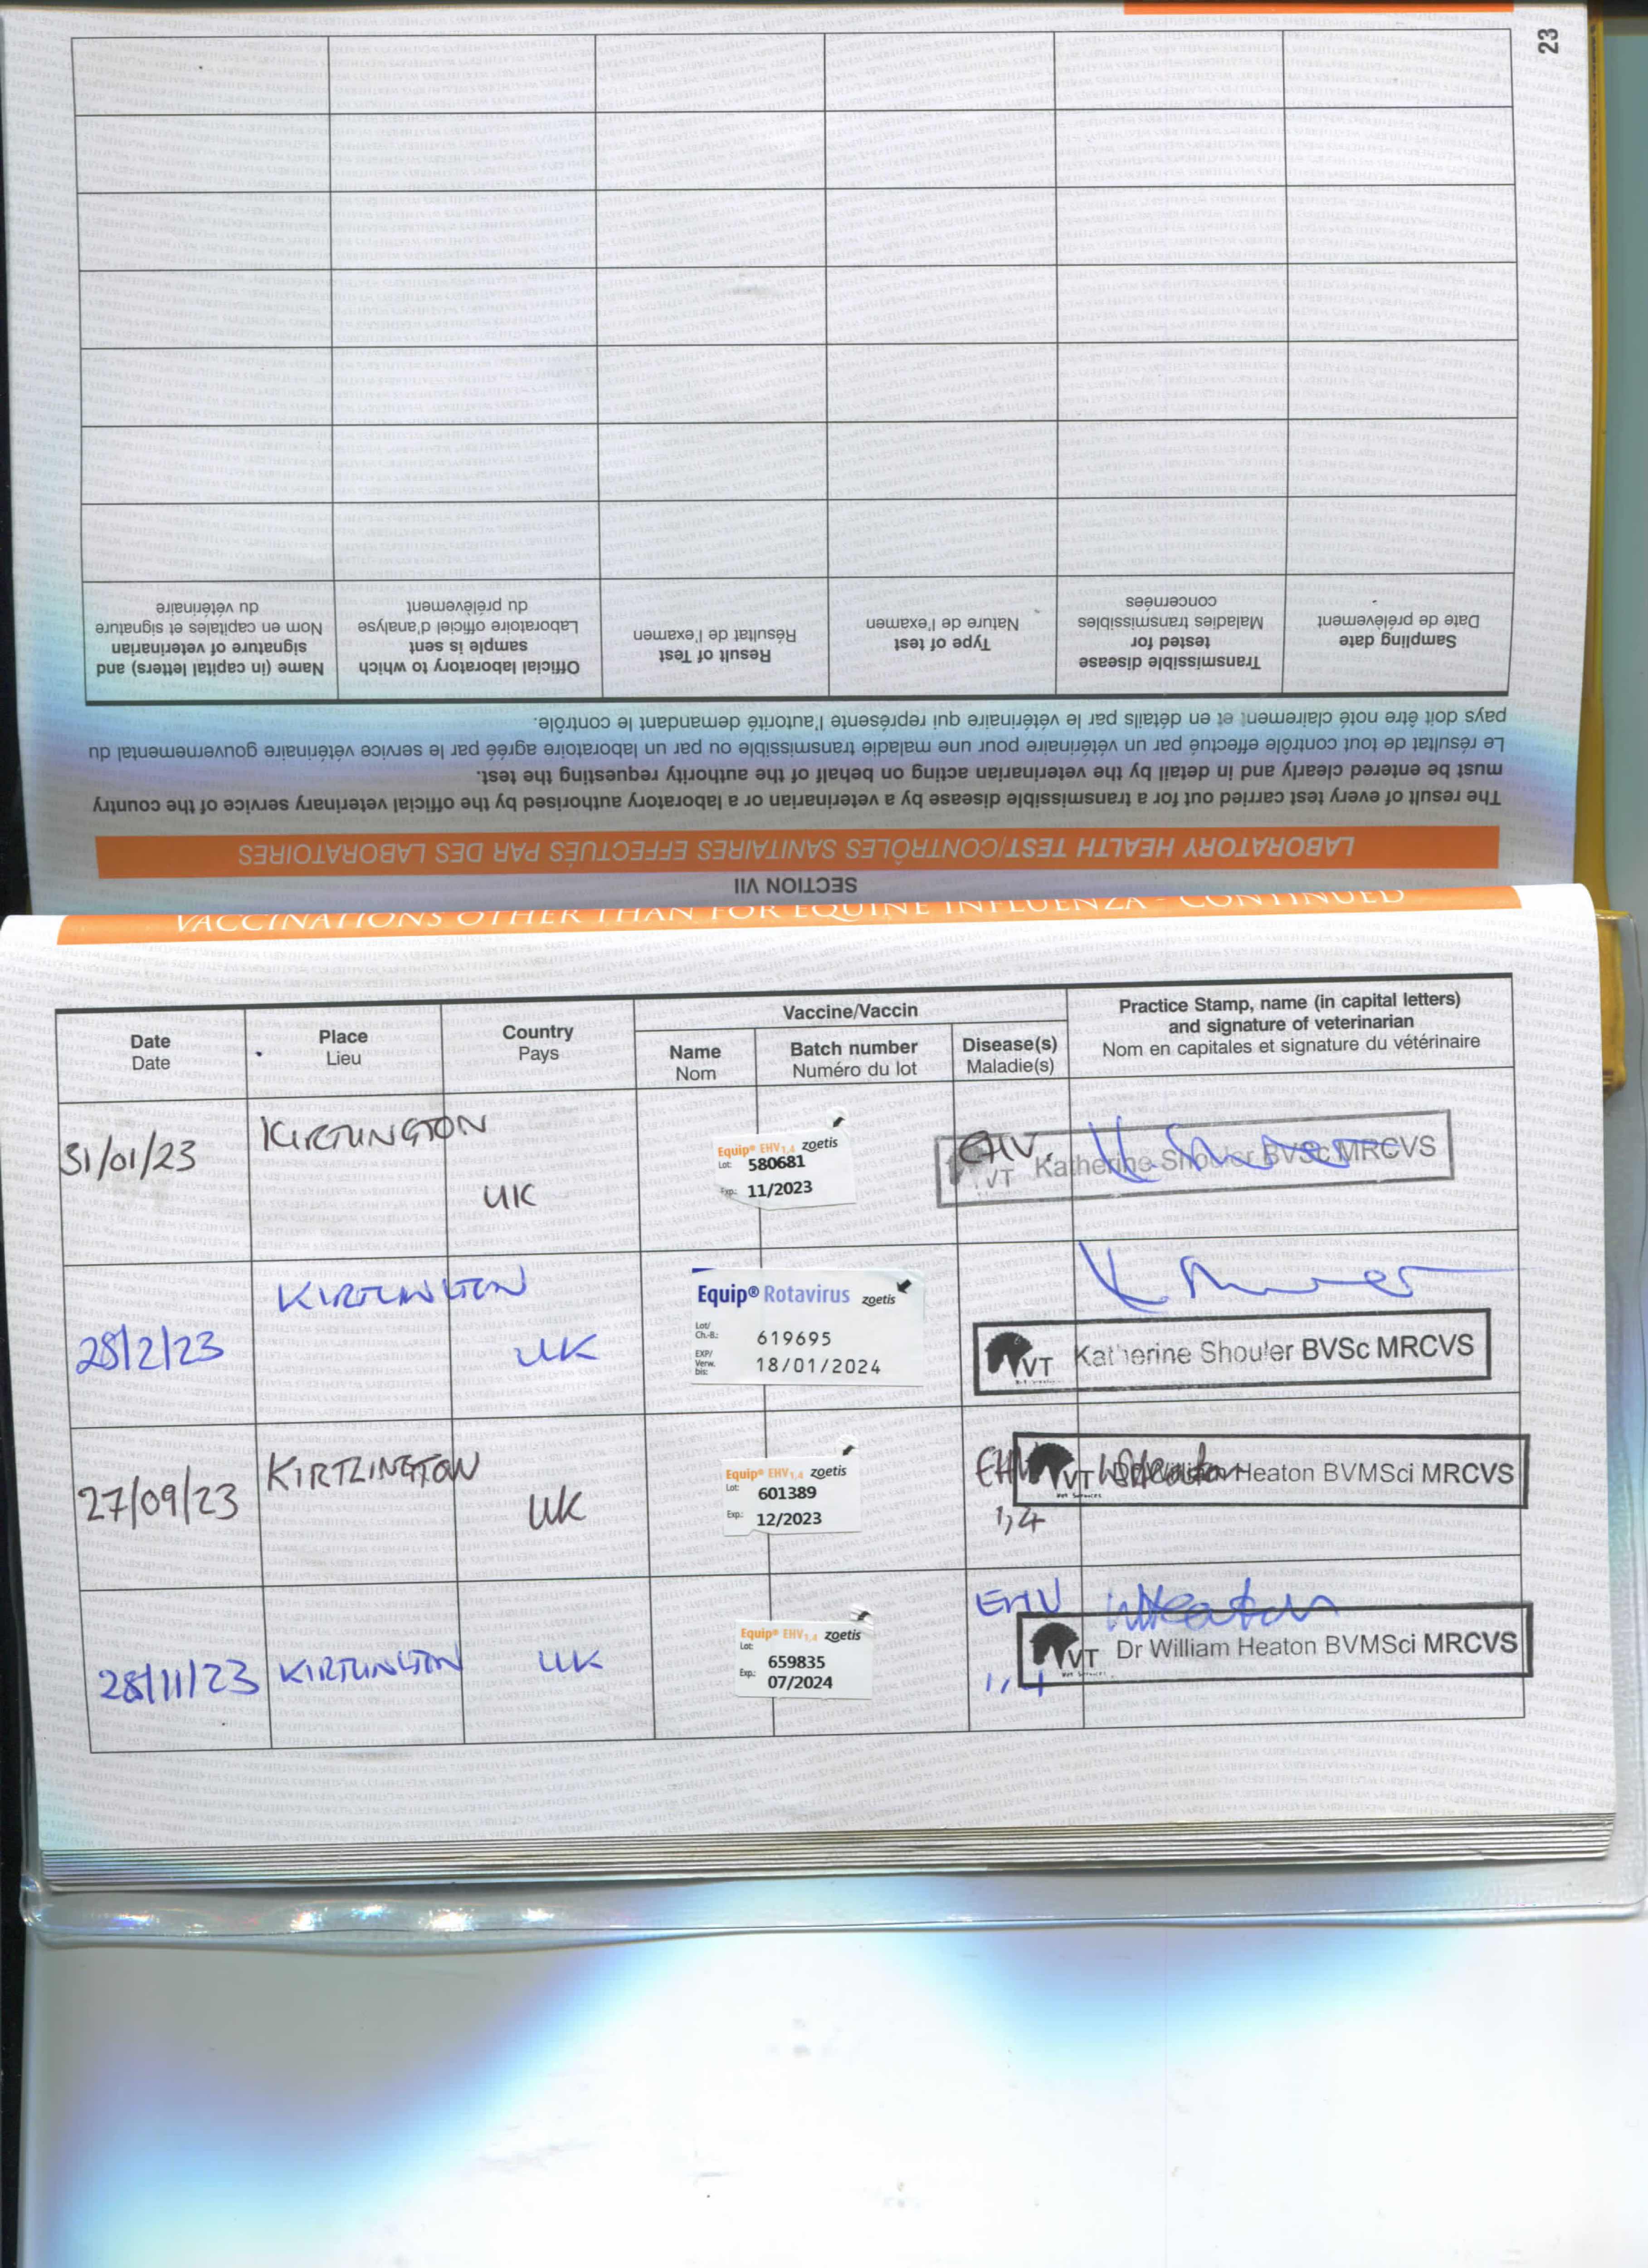 23
SECTION VII
LABORATORY HEALTH TEST/CONTRÔLES SANITAIRES EFFECTUÉS PAR DES LABORATOIRES
The result of every test carried out for a transmissible disease by a veterinarian or a laboratory authorised by the official veterinary service of the country
must be entered clearly and in detail by the veterinarian acting on behalf of the authority requesting the test.
Le résultat de tout contrôle effectué par un vétérinaire pour une maladie transmissible ou par un laboratoire agréé par le service vétérinaire gouvernemental du
pays doit être noté clairement et en détails par le vétérinaire qui représente l'autorité demandant le contrôle.
Sampling date
Date de prélèvement
Transmissible disease
tested for
Maladies transmissibles
concernées
Type of test
Nature de l'examen
Result of Test
Résultat de l'examen
Official laboratory to which
sample is sent
Laboratoire officiel d'analyse
du prélèvement
Name (in capital letters) and
signature of veterinarian
Nom en capitales et signature
du vétérinaire
VACCINATIONS OTHER THAN FOR EQUINE INFLUENZA - CONTINUED
Date
Date
Place
Lieu
Country
Pays
Vaccine/Vaccin
Name
Nom
Batch number
Numéro du lot
Disease(s)
Maladie(s)
Practice Stamp, name (in capital letters)
and signature of veterinarian
Nom en capitales et signature du vétérinaire
31/01/23
KIRTLINGTON
UK
Equip® EHV1,4 zoetis
Lot: 580681
Exp.: 11/2023
EHV.
VT Katherine Shouler BVSc MRCVS
28/2/23
KIRTLINGTON
UK
Equip® Rotavirus zoetis
Lot/
Ch.-B.: 619695
EXP/
Verw.
bis: 18/01/2024
VT Katherine Shouler BVSc MRCVS
27/09/23
KIRTLINGTON
UK
Equip® EHV1,4 zoetis
Lot: 601389
Exp.: 12/2023
EHV
1,4
VT Heaton BVMSci MRCVS
28/11/23
KIRTLINGTON
UK
Equip® EHV1,4 zoetis
Lot: 659835
Exp.: 07/2024
EHV
1,4
WHeaton
VT Dr William Heaton BVMSci MRCVS